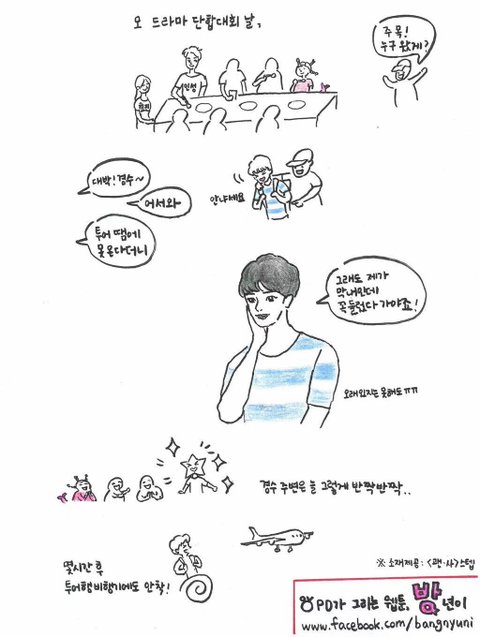 오 드라마 단합대회 날,
주목!
누구 왔게?
인성
대박! 경수~
어서와
안냐세요
투어 땜에
못온다더니
그래도 제가
막내인데
꼭 들렀다 가야죠!
오래있지는 못해도 ㅠㅠ
경수 주변은 늘 그렇게 반짝반짝..
몇시간 후
투어행 비행기에도 안착!
※ 소재제공 : <괜·사> 스텝
PD가 그리는 웹툰, 방년이
www.facebook.com/bangnyuni